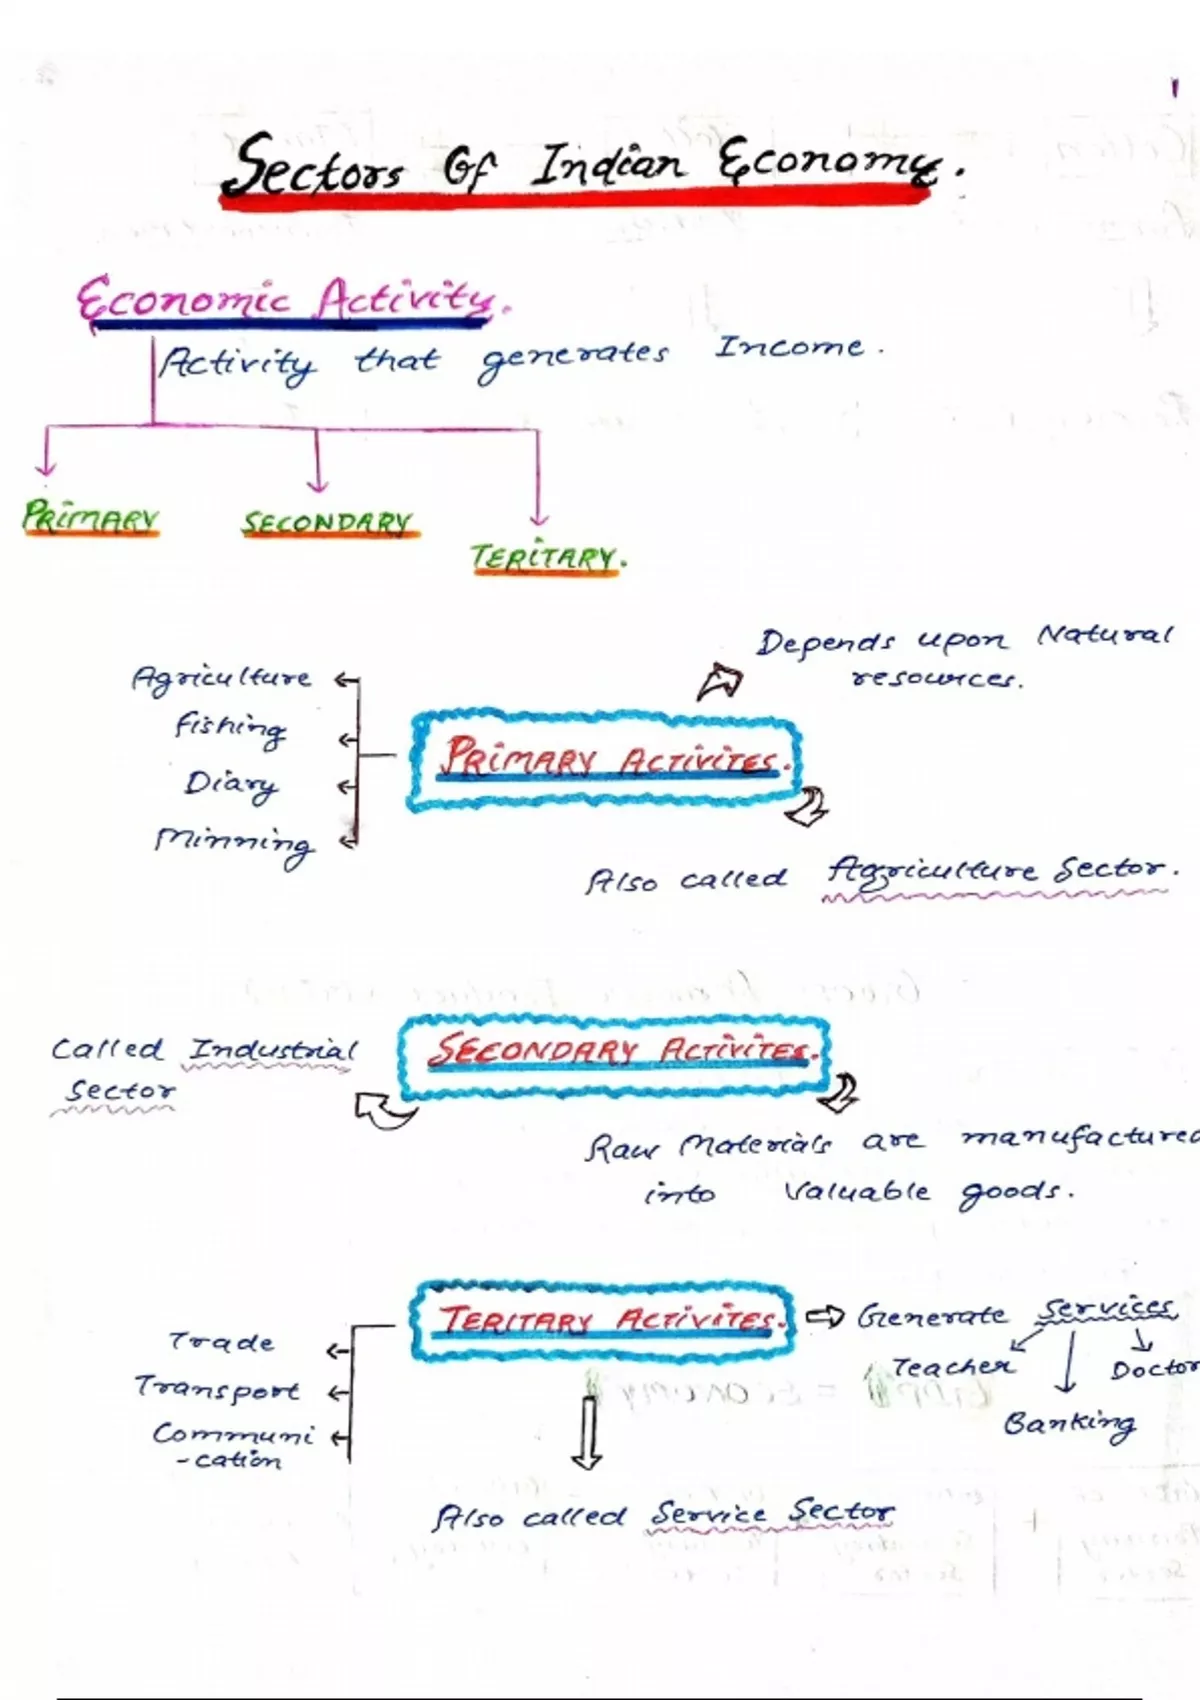 Sectors Of Indian Economy.
Economic Activity.
Activity that generates Income.
PRiMARY
SECONDARY
TERiTARY.
Depends upon Natural
resources.
Agriculture
fishing
Diary
Minning
PRiMARY ACTiViTES.
Also called Agriculture Sector.
Called Industrial
Sector
SECONDARY ACTiViTES.
Raw Materials are manufactured
into Valuable goods.
TERITARY ACTiViTES.
Generate Services
Teacher
Doctor
Banking
Trade
Transport
Communi
-cation
Also called Service Sector